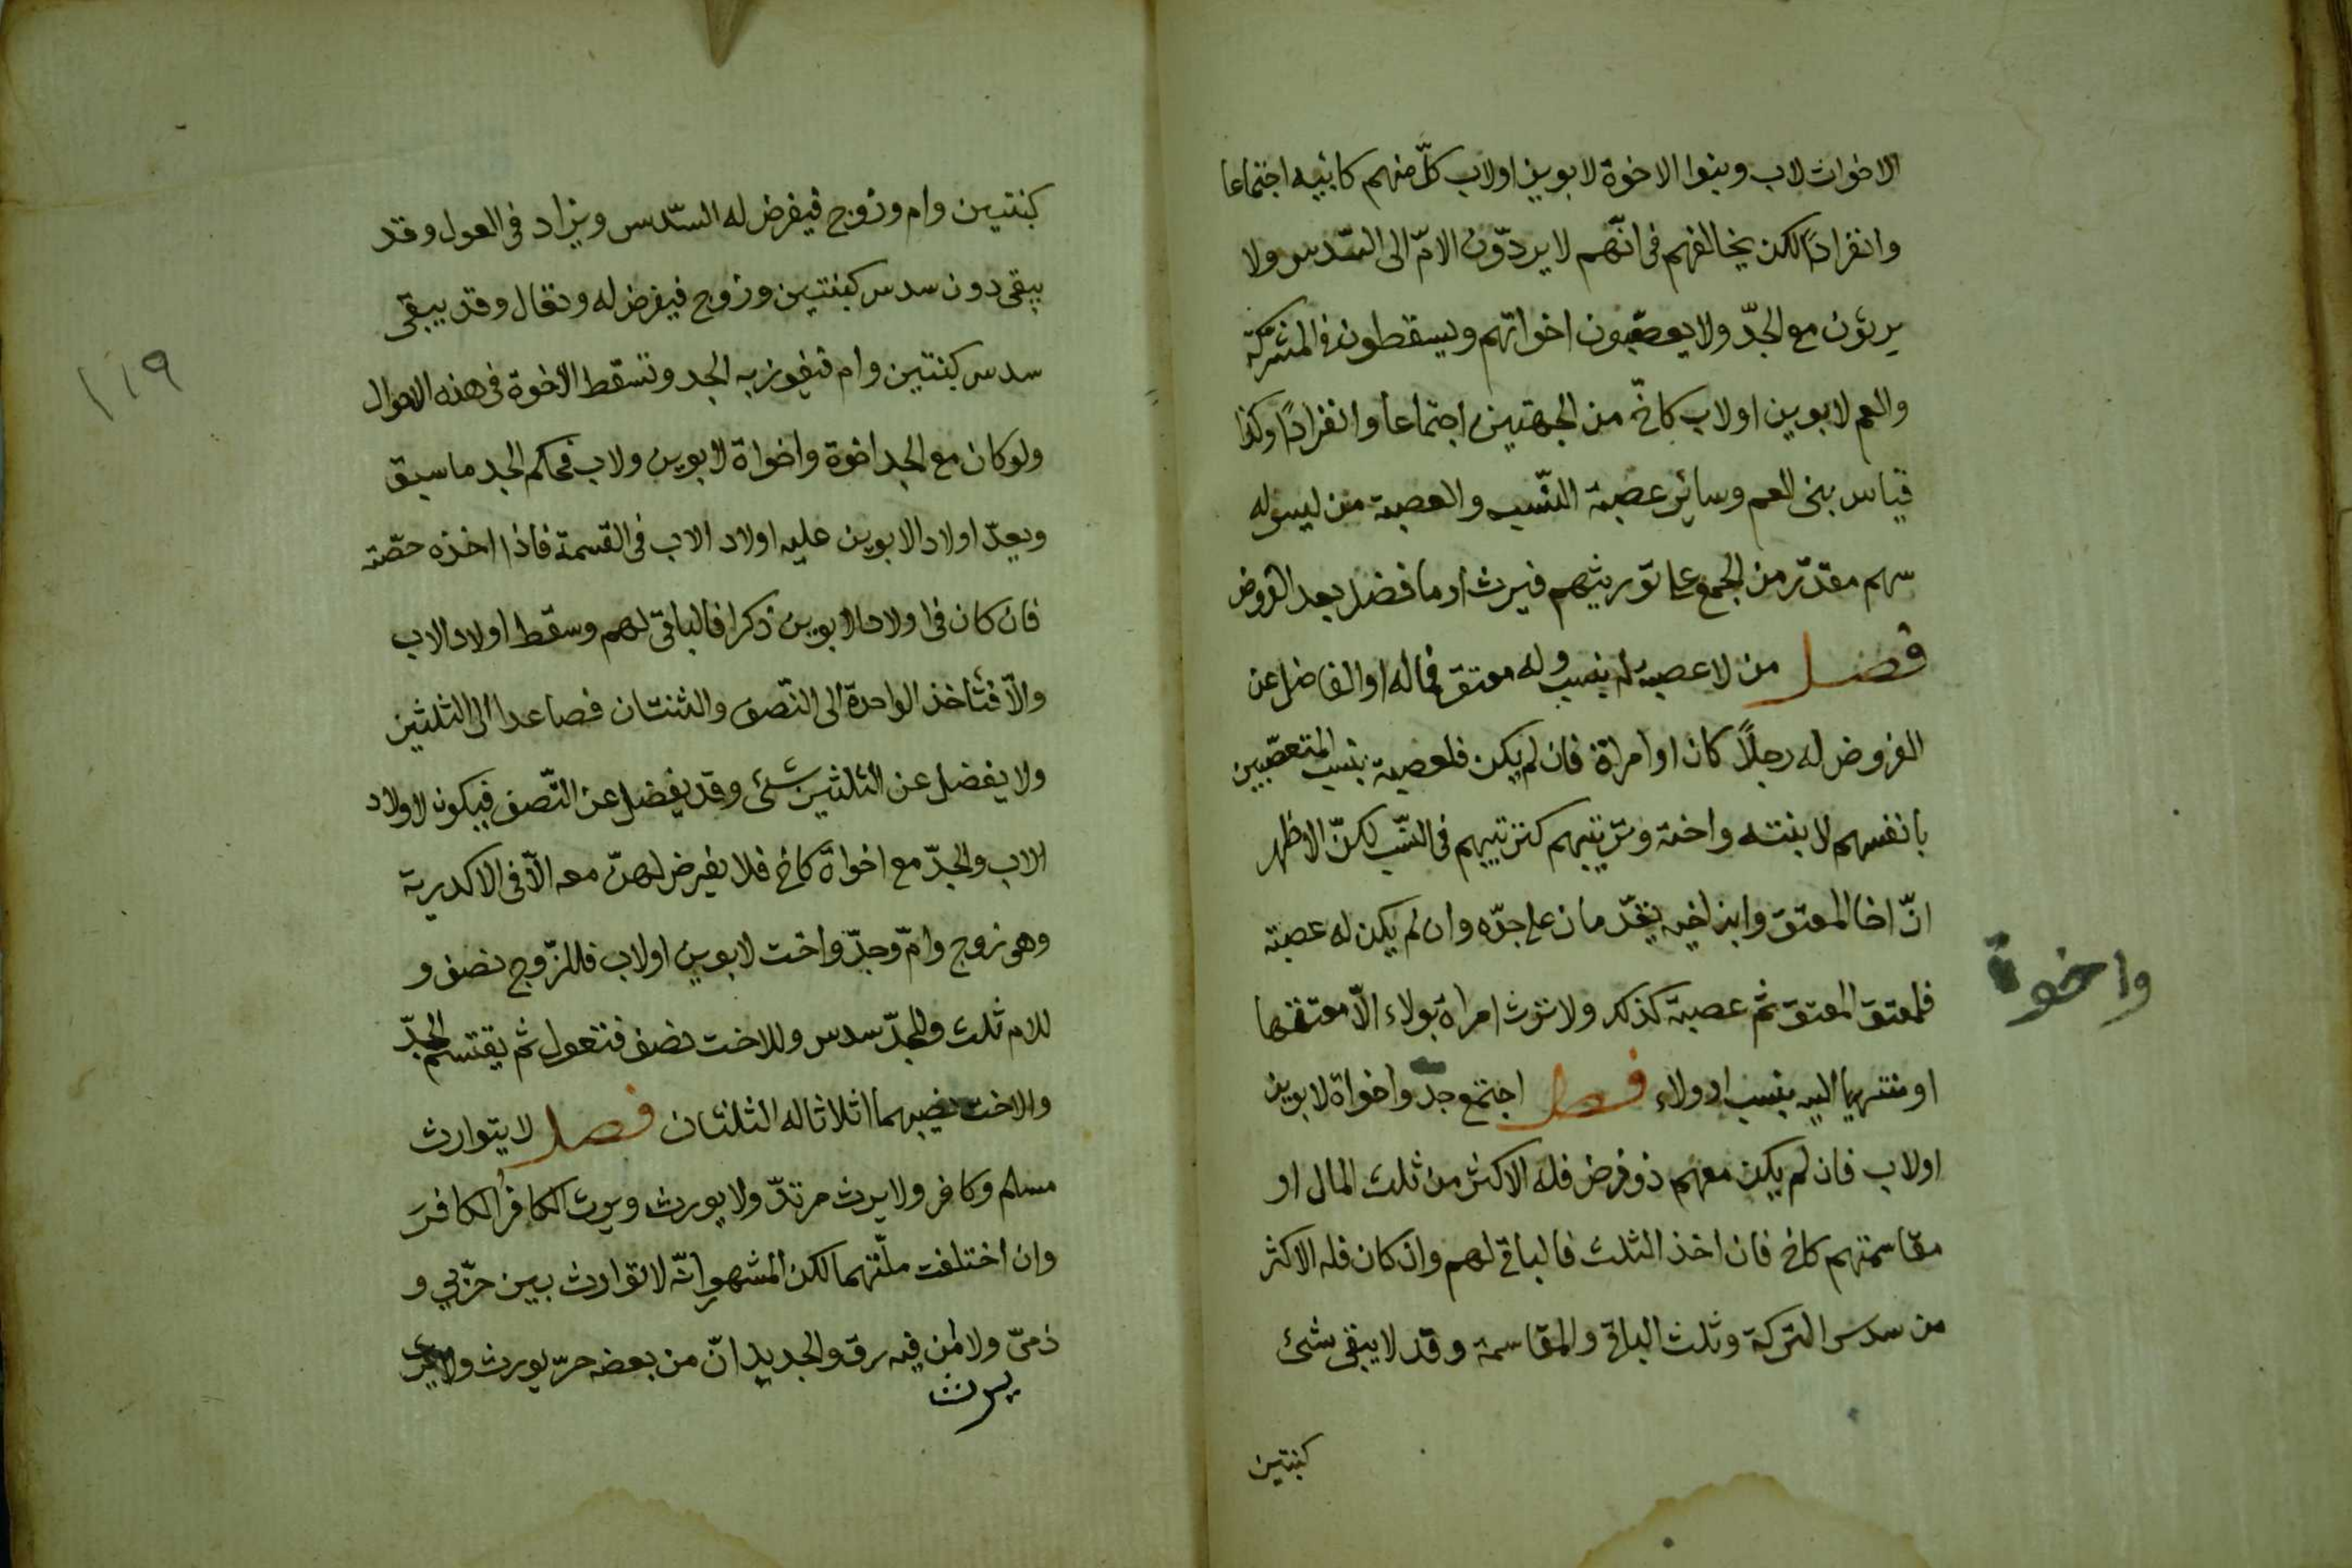 الاخوات لاب وبنوا الاخوة لابوين اولاب كلّ منهم كابيه اجتماعا
وانفرادًا لكن يخالفهم فى انّهم لا يردّون الامّ الى السّدس ولا
يرثون مع الجدّ ولا يعصّبون اخواتهم ويسقطون فى المشركة
والعم لابوين اولاب كاخّ من الجهتين اجتماعا وانفرادًا وكذا
قياس بنى العم وسائر عصبة النّسب والعصبة من ليس له
سهم مقدّر من الجمع على توريثهم فيرث او ما فضل بعد الفروض
فصل من لا عصبة له بنسب وله معتق فماله او الفاضل عن
الفروض له رجلًا كان او امراة فان لم يكن فلعصبة بنسب المتعصّبين
بانفسهم لا بنته واخته وترتيبهم كترتيبهم فى النّسب لكنّ الاظهر
انّ اخا المعتق وابن اخيه يقدّمان على جدّه وان لم يكن له عصبته
فلمعتق المعتق ثم عصبته كذلك ولا ترث امراة بولاء الّا معتقها
او منتهيا اليه بنسب او ولاء فصل اجتمع جدّ واخواة لابوين
واخوة
اولاب فان لم يكن معهم ذو فرض فله الاكثر من ثلث المال او
مقاسمتهم كاخ فان اخذ الثلث فالباقى لهم وان كان فله الاكثر
من سدس التركة وثلث الباقى والمقاسمة وقد لا يبقى شئ
كبنتين
١١٩
كبنتين وام وزوج فيفرض له السّدس ويزاد فى العول وقد
يبقى دون سدس كبنتين وزوج فيفرض له وتعال وقد يبقى
سدس كبنتين وام فيفوز به الجد وتسقط الاخوة فى هذه الاحوال
ولو كان مع الجد اخوة واخواة لابوين ولاب فحكم الجد ما سبق
ويعدّ اولاد الابوين عليه اولاد الاب فى القسمة فاذا اخذه حصّته
فان كان فى اولاد الابوين ذكرا فالباقى لهم وسقط اولاد الاب
والّا فتأخذ الواحدة الى النّصف والثنتان فصاعدا الى الثلثين
ولا يفضل عن الثلثين شئ وقد يفضل عن النّصف فيكون لاولاد
الاب والجدّ مع اخواة كاخ فلا يفرض لهنّ معه الّا فى الاكدرية
وهى زوج وامّ وجدّ واخت لابوين اولاب فللزّوج نصف و
للام ثلث وللجدّ سدس وللاخت نصف فتعول ثم يقتسم الجدّ
والاخت نصيبهما اثلاثا له الثلثان فصل لا يتوارث
مسلم وكافر ولا يرث مرتدّ ولا يورث ويرث الكافرُ الكافرَ
وان اختلفت ملّتهما لكن المشهور انّه لا توارث بين حرّبي و
ذمىّ ولا من فيه رق والجديد انّ من بعضه حرّ يورث ولا
يرث